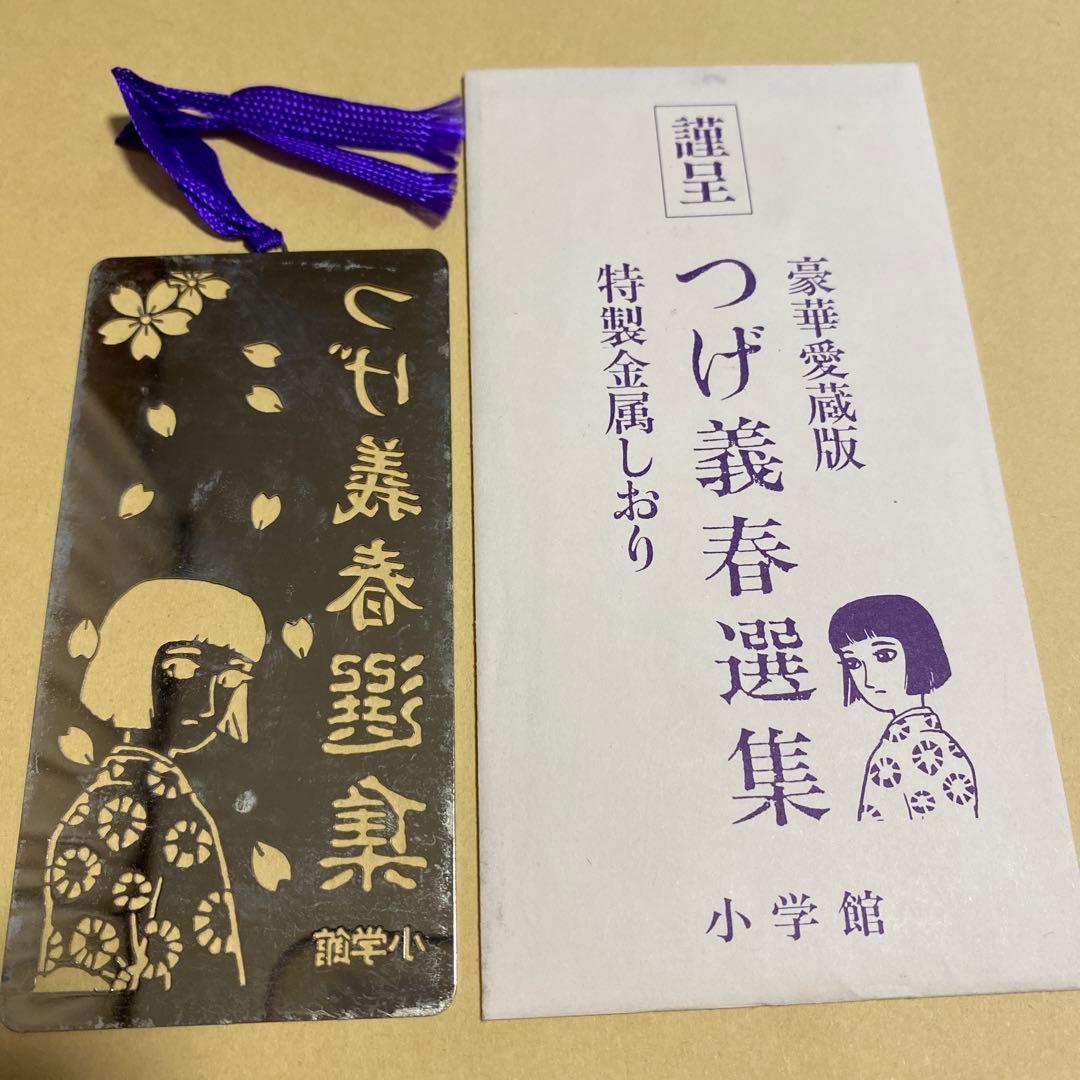 つげ義春選集
小学館
謹呈
豪華愛蔵版
つげ義春選集
特製金属しおり
小学館